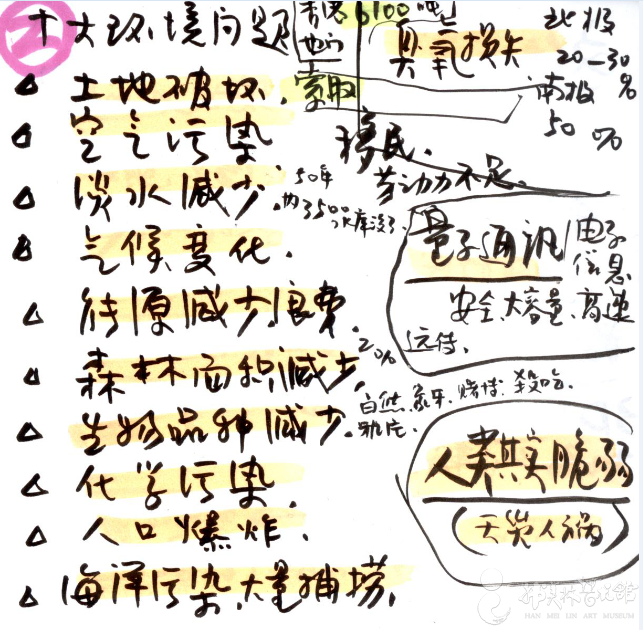 十大环境问题
土地破坏.索取
空气污染
淡水减少.
气候变化.
减少.浪费.
森林面积减少.
生物品种减少.
化学污染.
人口爆炸.
海洋污染.大量捕捞.
6100吨
臭氧损失
北极
20—30%
南极
50%
移民.
劳动力不足.
50年
内3500水库没了.
量子通讯
电子信息
安全.大容量.高速
远传.
20%
自然.象牙.赌博.
人类其实脆弱
(天灾人祸)
韩美林艺术馆
HAN MEI LIN ART MUSEUM